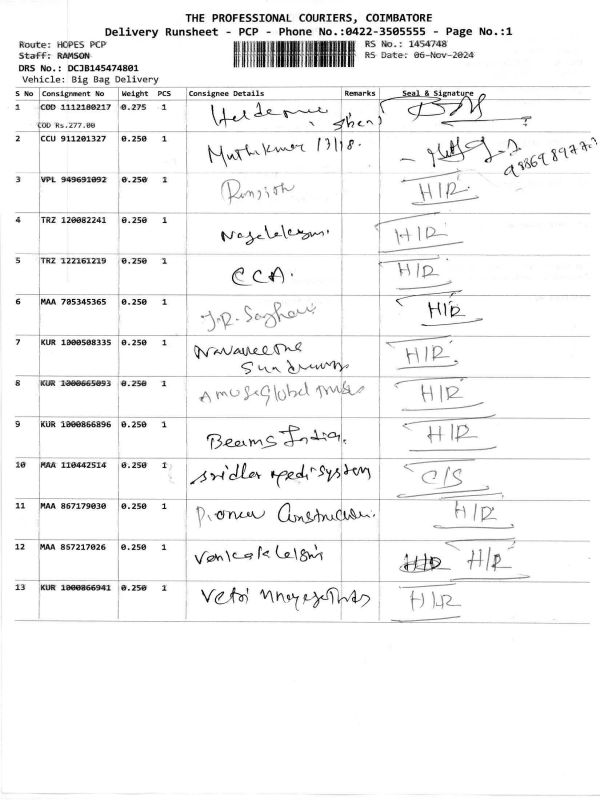 THE PROFESSIONAL COURIERS, COIMBATORE
Delivery Runsheet - PCP - Phone No.:0422-3505555 - Page No.:1
Route: HOPES PCP RS No.: 1454748
Staff: RAMSON RS Date: 06-Nov-2024
DRS No.: DCJB145474801
Vehicle: Big Bag Delivery
S No Consignment No Weight PCS Consignee Details Remarks Seal & Signature
1 COD 1112180217 0.275 1
COD Rs.277.00
2 CCU 911201327 0.250 1 Muthukumar
3 VPL 949691092 0.250 1 H/R
4 TRZ 120082241 0.250 1 H/R
5 TRZ 122161219 0.250 1 CCA. H/R
6 MAA 705345365 0.250 1 J.R. H/R
7 KUR 1000508335 0.250 1 H/R
8 KUR 1000665093 0.250 1 Global H/R
9 KUR 1000866896 0.250 1 Beams India. H/R
10 MAA 110442514 0.250 1 C/S
11 MAA 867179030 0.250 1 Pioneer Construction. H/R
12 MAA 857217026 0.250 1 H/R
13 KUR 1000866941 0.250 1 H/R